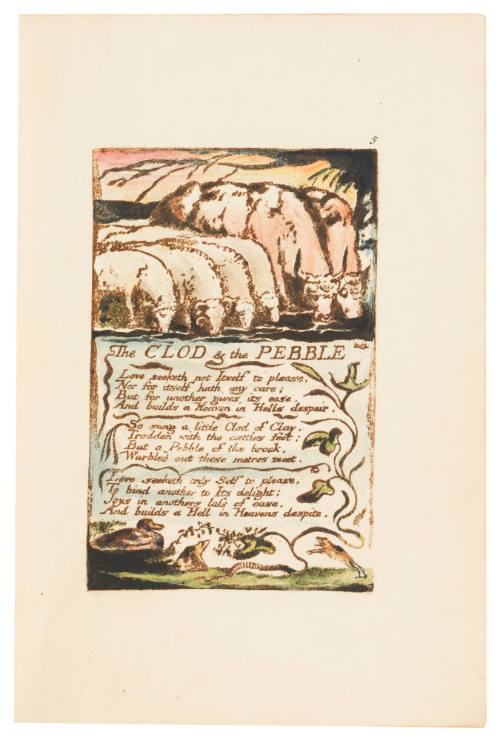 5
The CLOD & the PEBBLE
Love seeketh not Itself to please,
Nor for itself hath any care;
But for another gives its ease,
And builds a Heaven in Hells despair.
So sung a little Clod of Clay,
Trodden with the cattles feet:
But a Pebble of the brook,
Warbled out these metres meet.
Love seeketh only Self to please,
To bind another to Its delight:
Joys in anothers loss of ease,
And builds a Hell in Heavens despite.